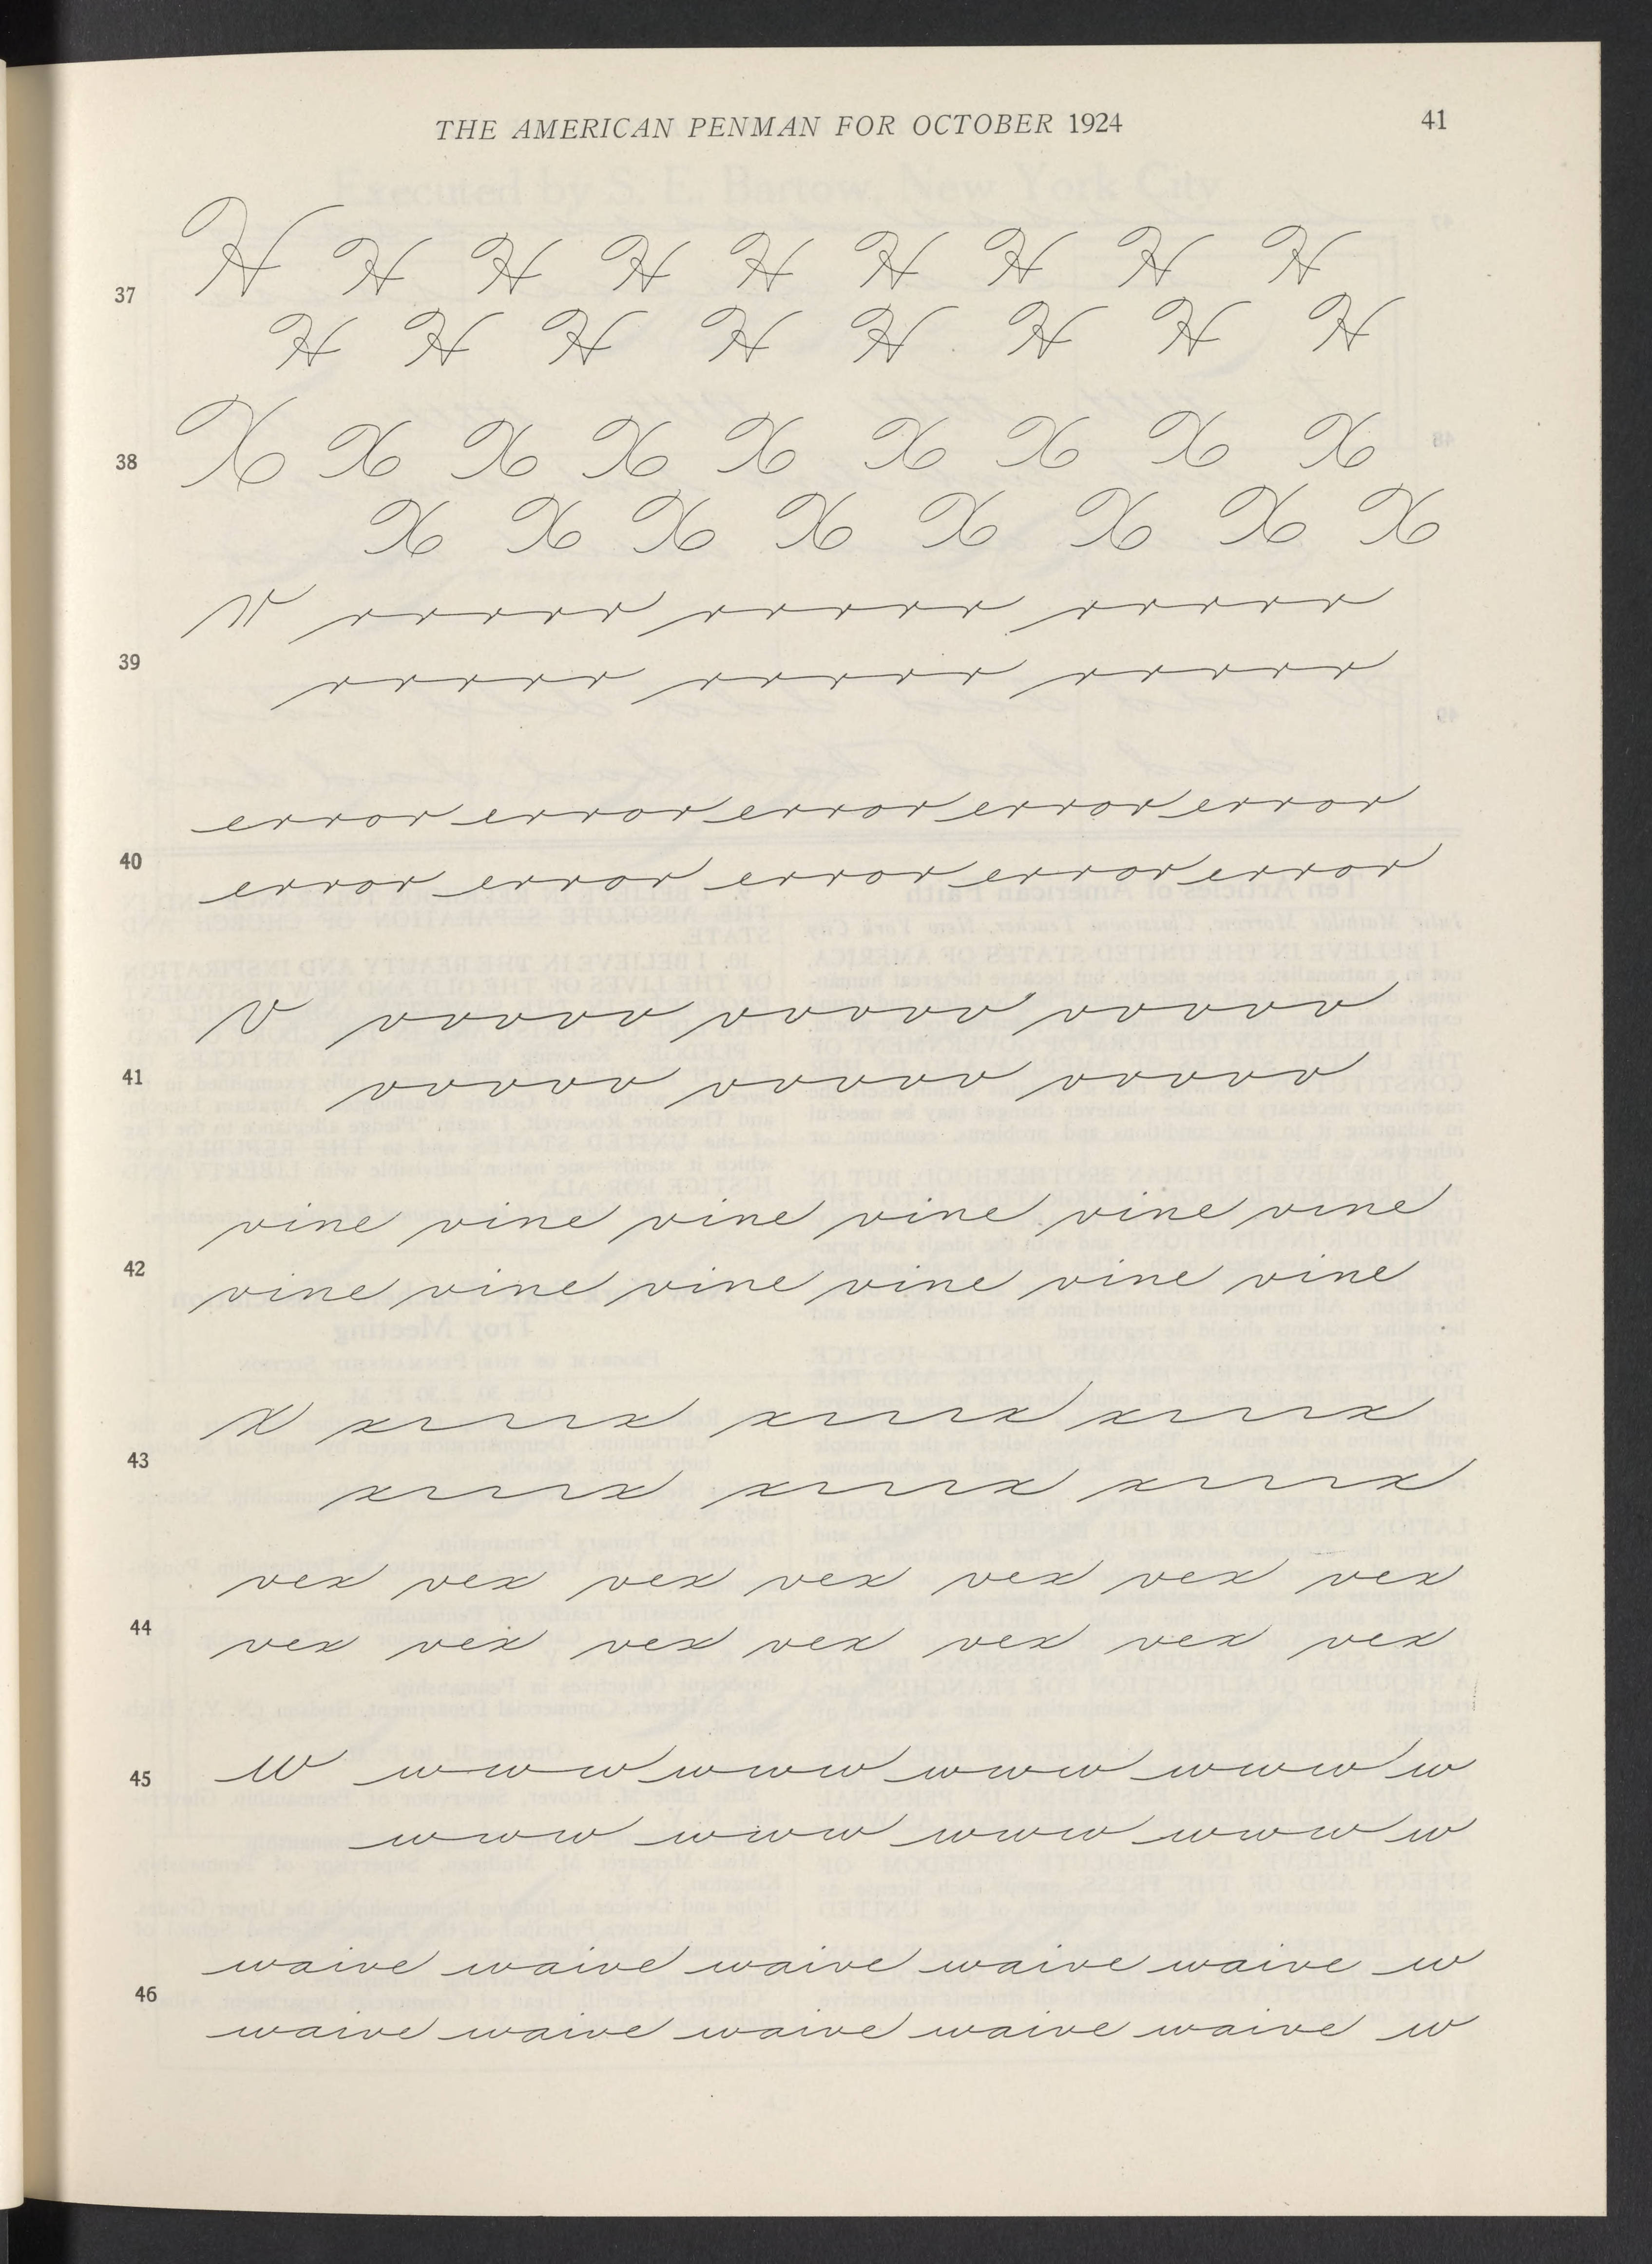 THE AMERICAN PENMAN FOR OCTOBER 1924 41
H H H H H H H H H
37
H H H H H H H H
38 X X X X X X X X X
X X X X X X X X
r rrrrr rrrrr rrrrr
39
rrrrr rrrrr rrrrr
error error error error error
40
error error error error error
v vvvvv vvvvv vvvvv
41
vvvvv vvvvv vvvvv
vine vine vine vine vine vine
42
vine vine vine vine vine vine
x xxxxx xxxxx xxxxx
43
xxxxx xxxxx xxxxx
vex vex vex vex vex vex vex
44
vex vex vex vex vex vex vex
45 w www www www www w
www www www www w
waive waive waive waive waive w
46
waive waive waive waive waive w